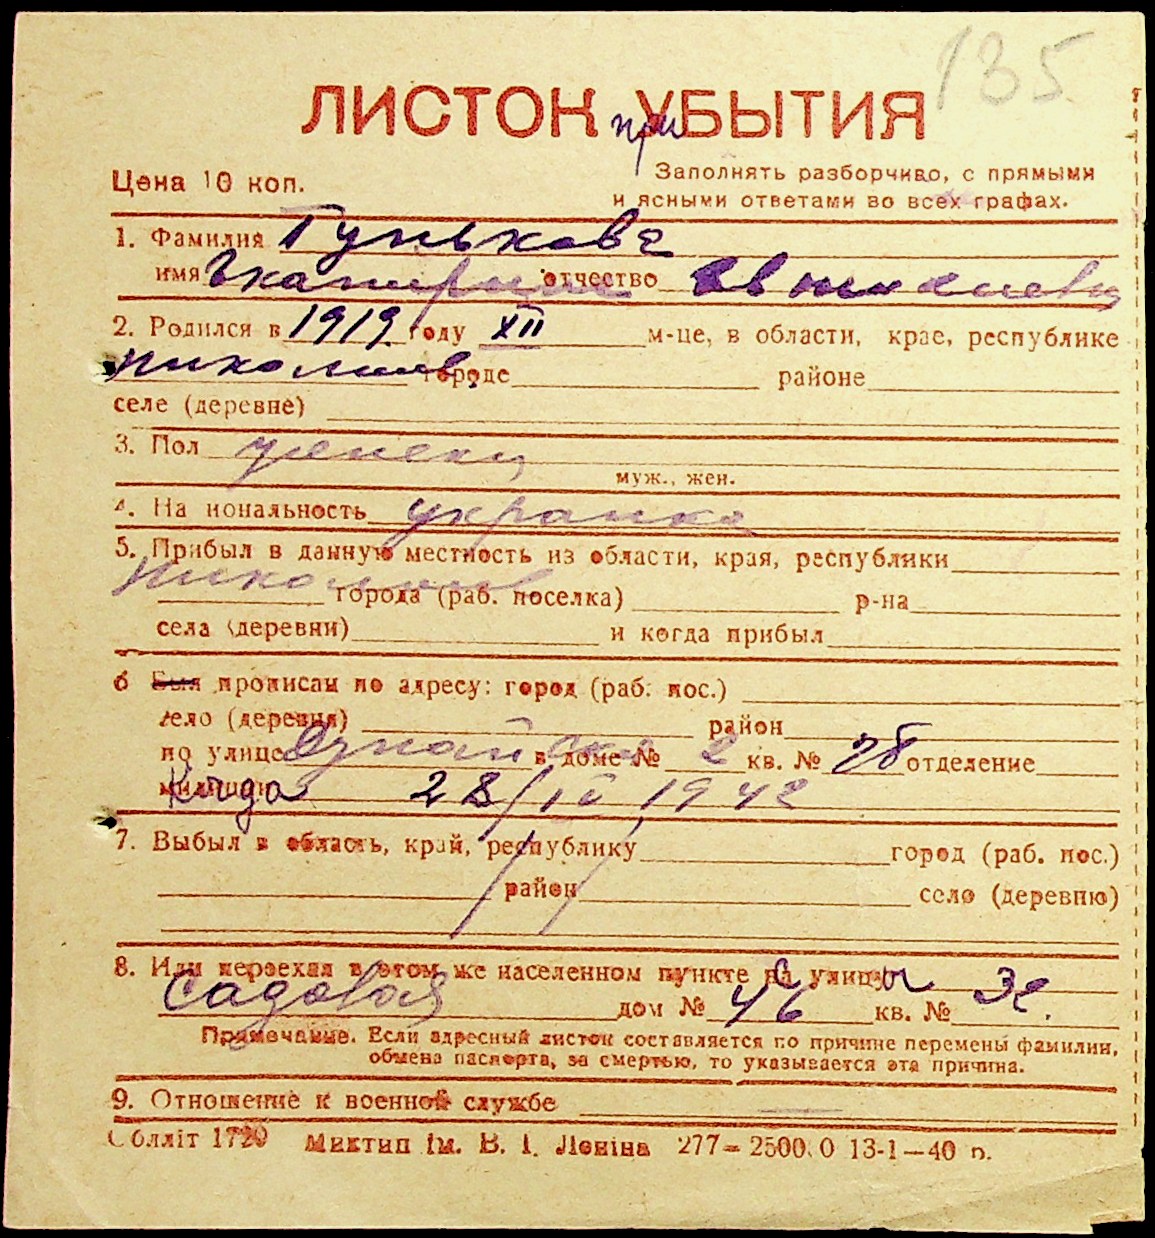 135
ЛИСТОК при УБЫТИЯ
Цена 10 коп.
Заполнять разборчиво, с прямыми
и ясными ответами во всех графах.
1. Фамилия Гунькова
имя Екатерина отчество
2. Родился в 1919 году XII м-це, в области, крае, республике
Николаев городе районе
селе (деревне)
3. Пол женский
муж., жен.
4. На иональность украинка
5. Прибыл в данную местность из области, края, республики
Николаев города (раб. поселка) р-на
села (деревни) и когда прибыл
6 Был прописан по адресу: город (раб. пос.)
село (деревня) район
по улице в доме № 2 кв. № 28 отделение
милиции Когда 28/IV 1942
7. Выбыл в область, край, республику город (раб. пос.)
район село (деревню)
8. Или переехал в этом же населенном пункте с улицы
Садовая дом № 46 кв. №
Примечание. Если адресный листок составляется по причине перемены фамилии,
обмена паспорта, за смертью, то указывается эта причина.
9. Отношение к военной службе
Обллiт 1720 Миктип Iм. В. I. Ленiна 277—2500.0 13-1—40 р.